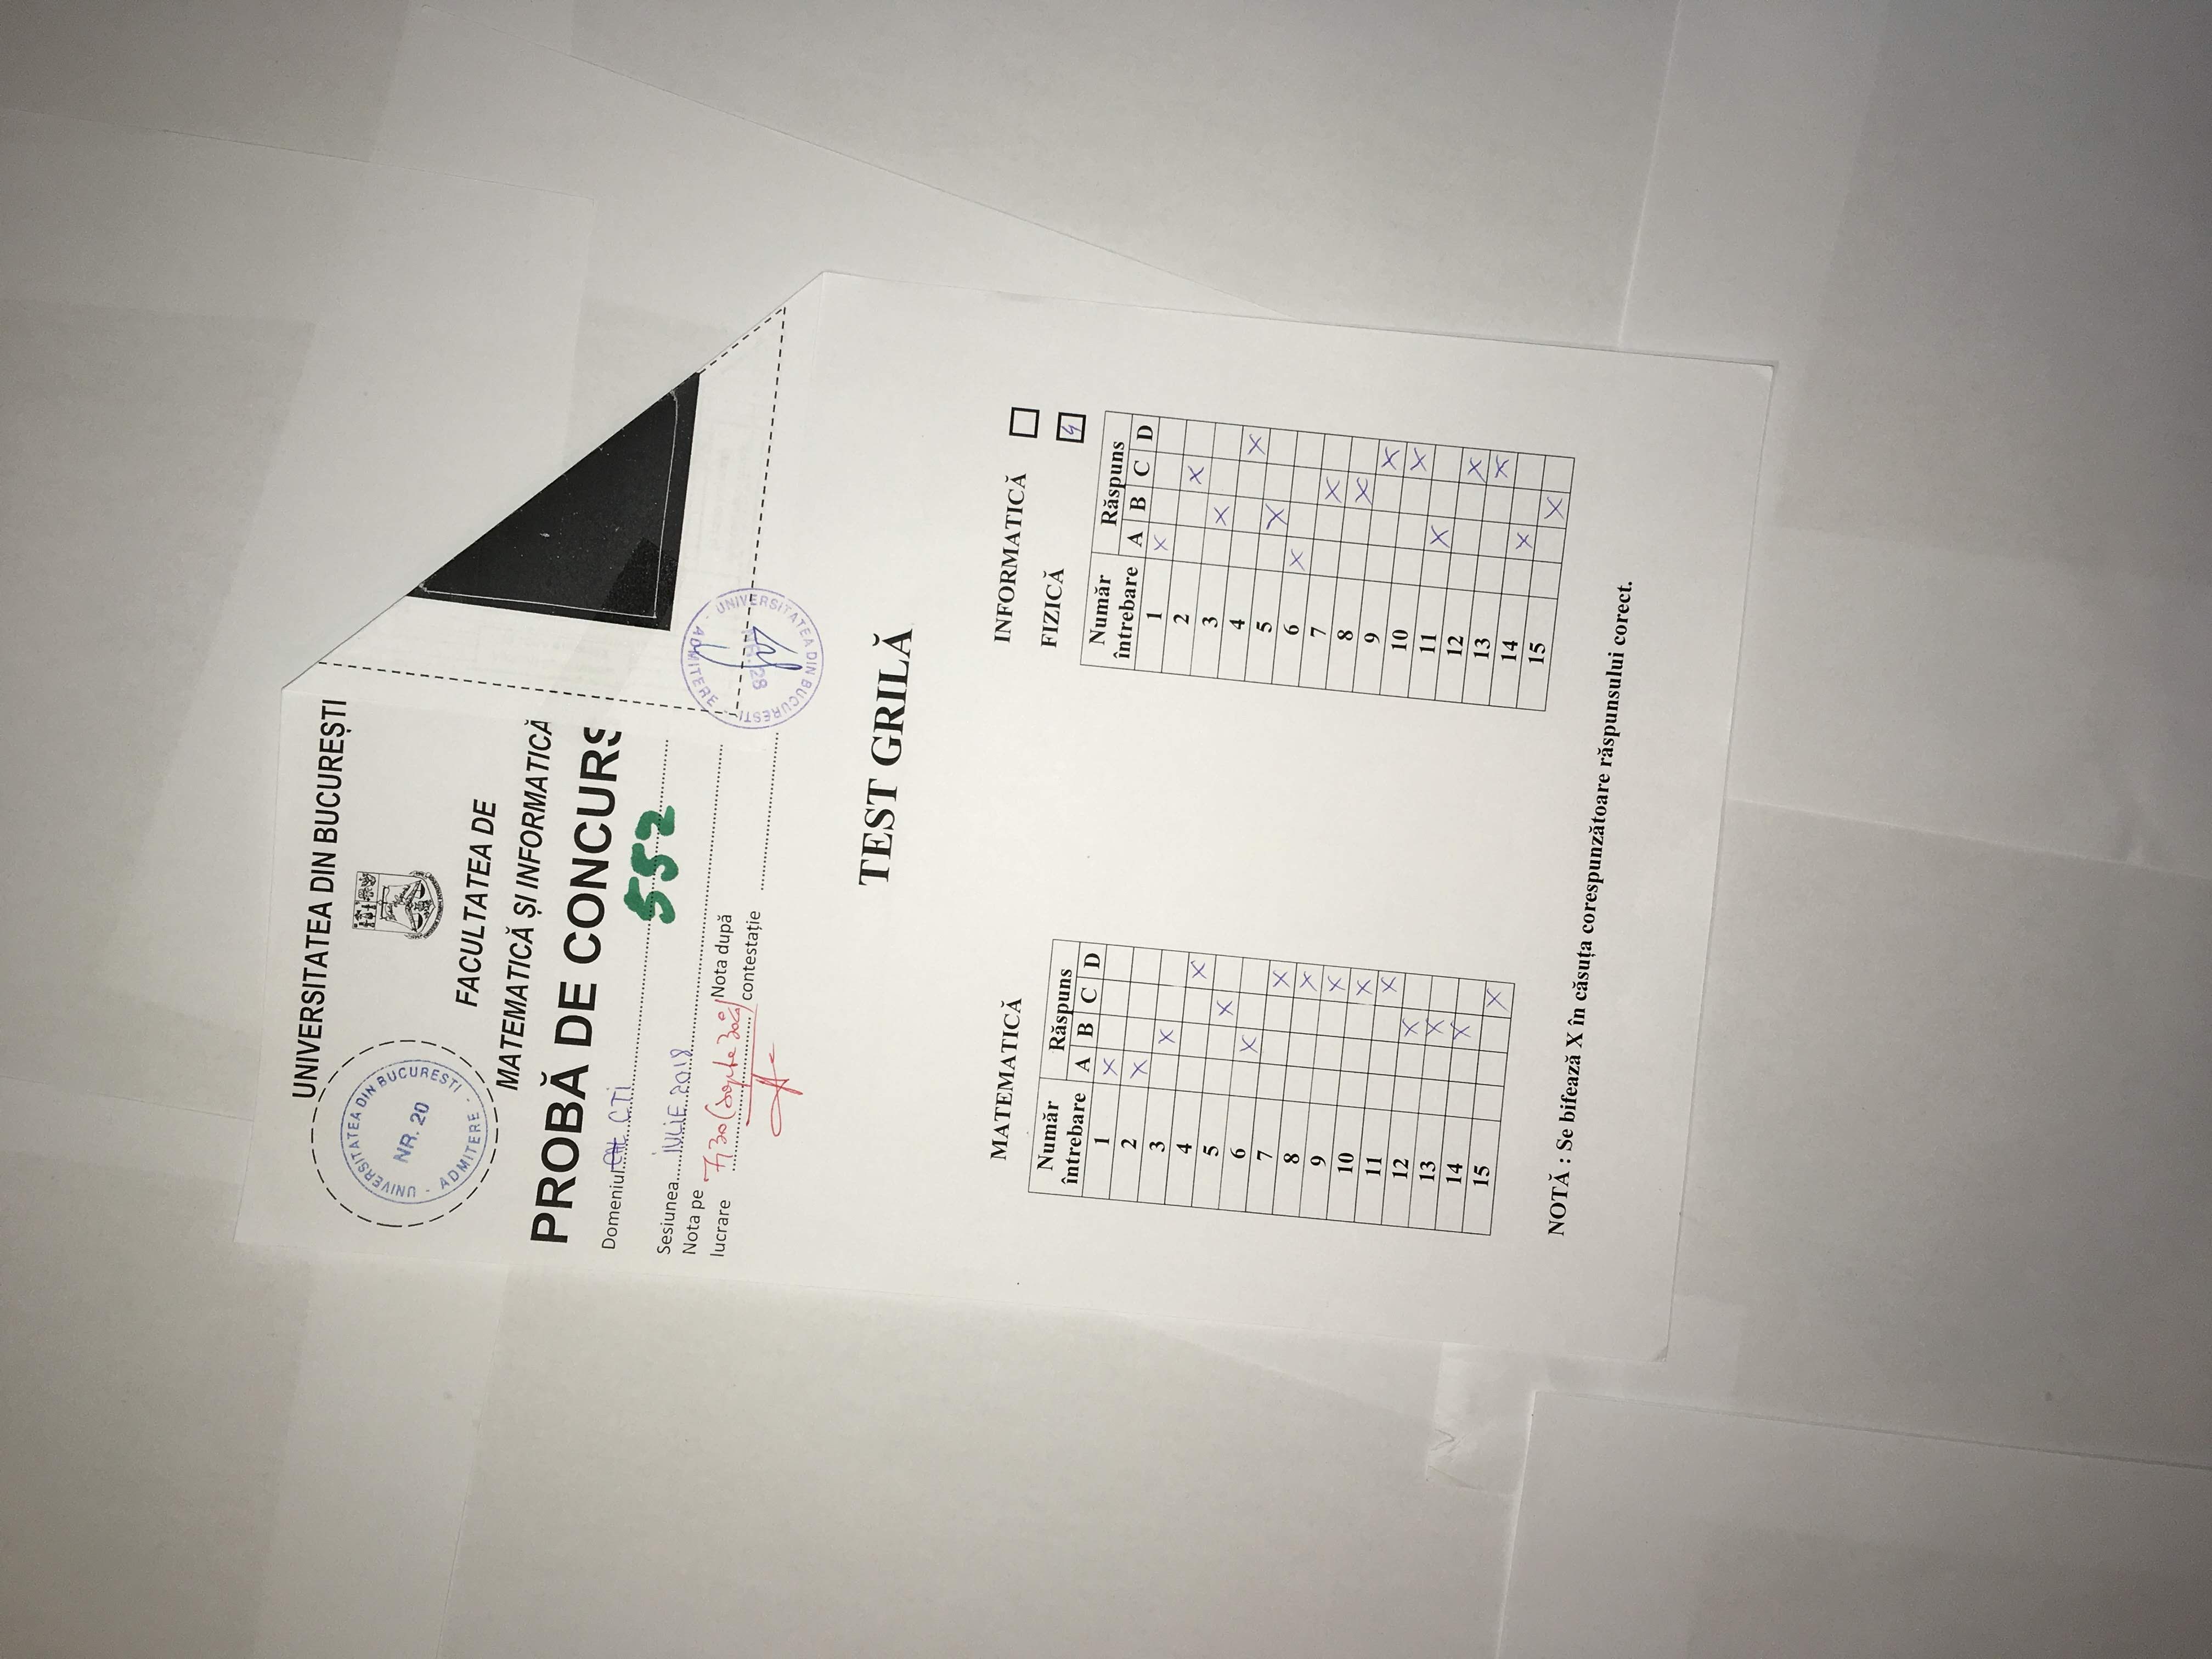 UNIVERSITATEA DIN BUCUREȘTI
UNIVERSITATEA DIN BUCURESTI
NR. 20
ADMITERE
FACULTATEA DE
MATEMATICĂ ȘI INFORMATICĂ
PROBĂ DE CONCURS
Domeniul CTI
552
Sesiunea IULIE 2018
Nota pe lucrare 7,30 (șapte 30%)
Nota după contestație
UNIVERSITATEA DIN BUCURESTI
NR. 28
ADMITERE
TEST GRILĂ
MATEMATICĂ
Număr întrebare Răspuns
A B C D
1 X
2 X
3 X
4 X
5 X
6 X
7 X
8 X
9 X
10 X
11 X
12 X
13 X
14 X
15 X
INFORMATICĂ
FIZICĂ 4
Număr întrebare Răspuns
A B C D
1 X
2 X
3 X
4 X
5 X
6 X
7 X
8 X
9 X
10 X
11 X
12 X
13 X
14 X
15 X
NOTĂ : Se bifează X în căsuța corespunzătoare răspunsului corect.